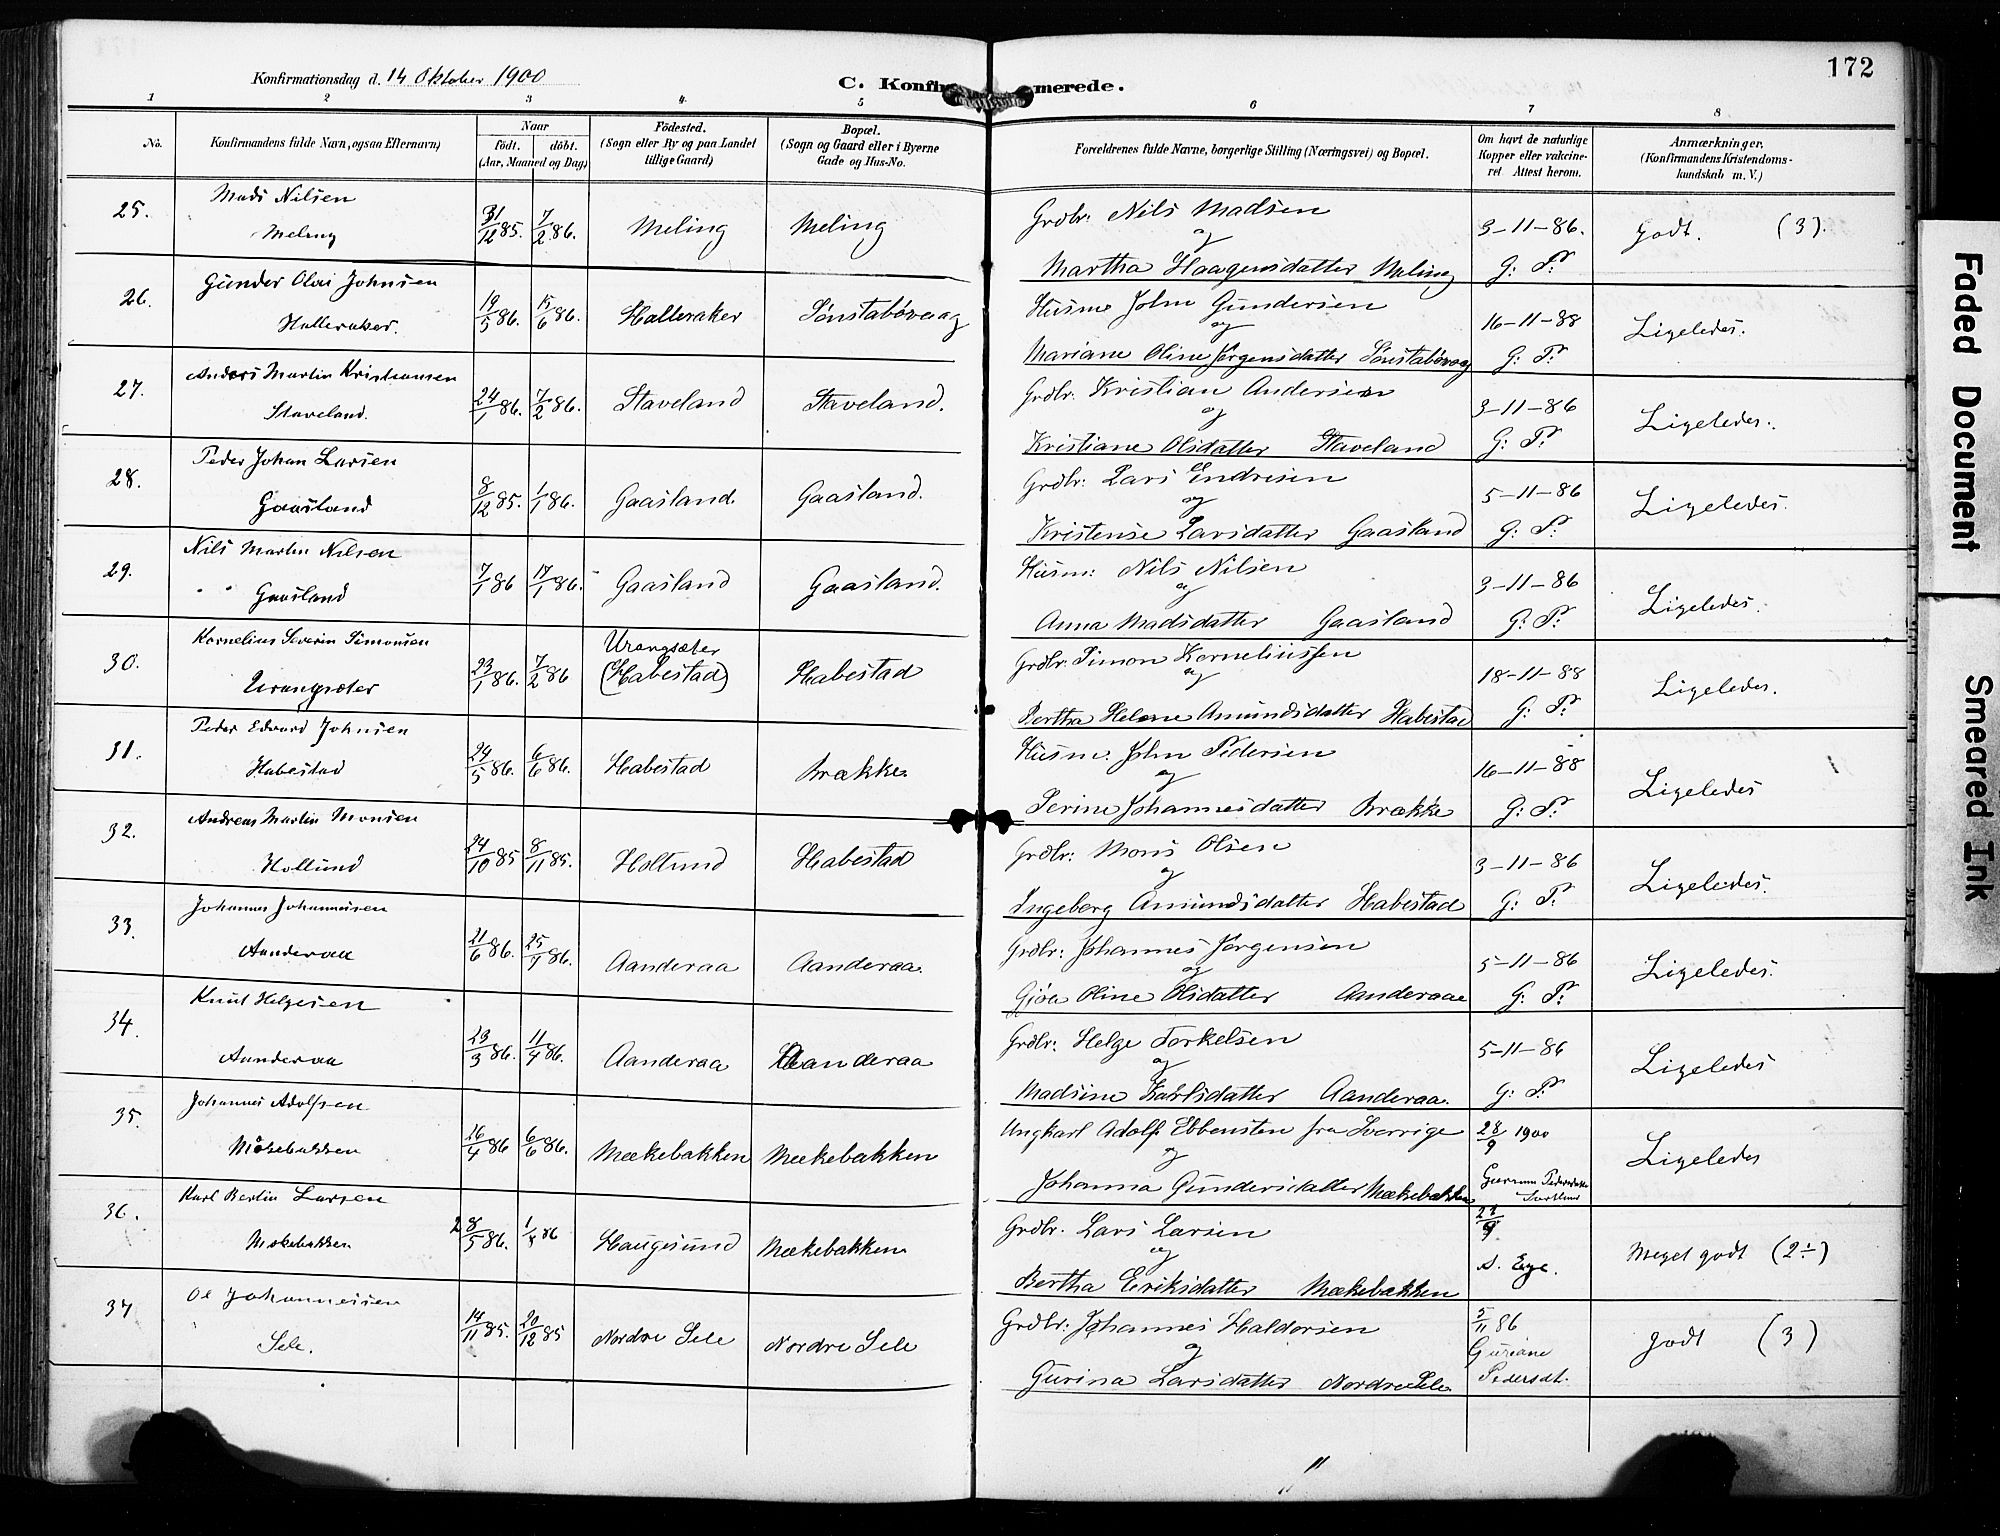 172
Konfirmationsdag d. 14 Oktober 1900
C. Konfir merede.
1 2 3 4. 5 6 7 8
No. Konfirmandens fulde Navn, ogsaa Efternavn) Naar født. døbt. (Aar, Maaned og Dag) Fødested. (Sogn eller By og paa Landet tillige Gaard) Bopæl. (Sogn og Gaard eller i Byerne Gade og Hus-No. Forældrenes fulde Navne, borgerlige Stilling (Næringsvei) og Bopæl. Om havt de naturlige Kopper eller vakcineret Attest herom. Anmærkninger. (Konfirmandens Kristendomskundskab m. V.)
25. Mads Nilsen Meling 31/12 85. 7/2 86. Meling Meling Grdbr: Nils Madsen og Martha Haagensdatter Meling 3-11-86. G: P: Godt. (3).
26. Gunder Olai Johnsen Halleraker. 19/5 86. 15/6 86. Halleraker Sønstabøvaag Husm John Gundersen og Mariane Oline Jørgensdatter Sønstabøvaag 16-11-88 G: P: Ligeledes.
27. Anders Martin Kristiansen Staveland. 24/1 86. 7/2 86. Staveland Staveland. Grdbr: Kristian Andersen og Kristiane Olsdatter Staveland 3-11-86 G: P: Ligeledes.
28. Peder Johan Larsen Gaasland 8/12 85. 1/1 86. Gaasland. Gaasland. Grdbr: Lars Endresen og Kristense Larsdatter Gaasland 5-11-86 G: P: Ligeledes.
29. Nils Martin Nilsen Gaasland 7/1 86 17/1 86. Gaasland Gaasland. Husm: Nils Nilsen og Anna Madsdatter Gaasland 3-11-86 G: P: Ligeledes.
30. Kornelius Severin Simonsen Urangsæter 23/1 86. 7/2 86 Urangsæter (Habestad) Habestad Grdbr: Simon Korneliussen og Bertha Helene Amundsdatter Habestad 18-11-88 G: P: Ligeledes.
31. Peder Edvard Johnsen Habestad 24/5 86. 6/6 86. Habestad Brække Husm. John Pedersen og Serine Johannesdatter Brække 16-11-88 G: P: Ligeledes
32. Andreas Martin Monsen Hollund 24/10 85 8/11 85. Hollund Habestad Grdbr: Mons Olsen og Ingeborg Amundsdatter Habestad 3-11-86 G: P: Ligeledes.
33. Johannes Johannesen Aanderaa 21/6 86. 25/7 86. Aanderaa Aanderaa. Grdbr: Johannes Jørgensen og Gjøa Oline Olsdatter Aanderaa 5-11-86 G: P: Ligeledes.
34. Knut Helgesen Aanderaa 23/3 86. 11/4 86. Aanderaa Aanderaa Grdbr: Helge Torkelsen og Madsine Karlsdatter Aanderaa. 5-11-86 G: P: Ligeledes
35. Johannes Adolfsen Møkebakken 26/4 86 6/6 86. Mækebakken Mækebakken Ungkarl Adolf Ebbensten fra Sverrige og Johanna Gundersdatter Mækebakken 28/9 1900 Ligeledes
36. Karl Bertin Larsen Møkebakken 28/5 86. 86 Haugesund Mækebakken Grdbr. Lars Larsen og Bertha Eriksdatter Mækebakken A. Eye. Meget godt (2÷)
37 Ole Johannessen Sele. 14/11 85. 20/12 85 Nordre Sele Nordre Sele Grdbr: Johannes Haldorsen og Gurina Larsdatter Nordre Sele 5/11 86 Guriane Pedersdt. Godt (3)
Faded Document
Smeared Ink